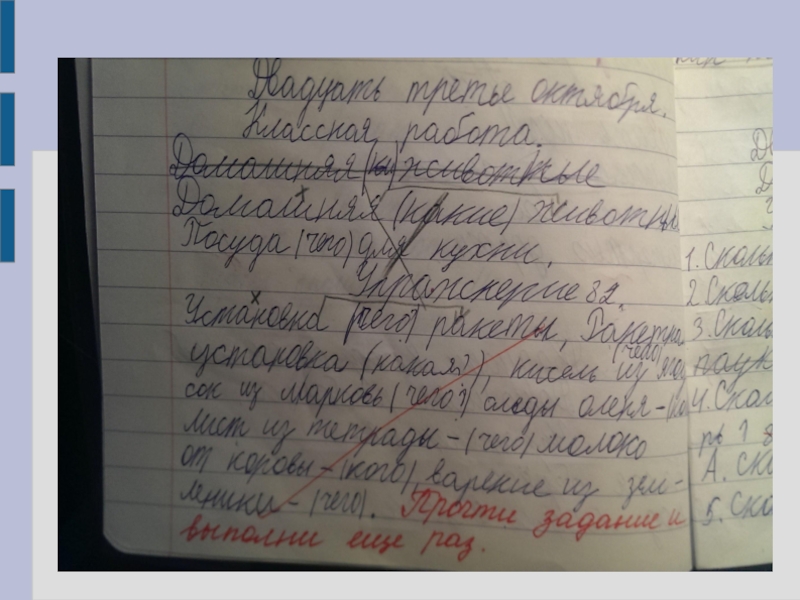 Двадцать третье октября.
Классная работа.
Домашняя животные
Домашняя (какие) животные
Посуда (чего) для кухни.
Упражнение 82.
Установка (чего?) ракеты, Ракетная
установка (какая?), кисель из ягод (чего)
сок из марковь (чего?) следы оленя -
лист из тетрады - (чего) молоко
от коровы - (кого), варение из зем-
леники - (чего). Прочти задание и
выполни еще раз.
1. Сколь
2. Сколь
3. Сколь
паук
4. Скол
рь 1 8
А. Ско
5. Ско